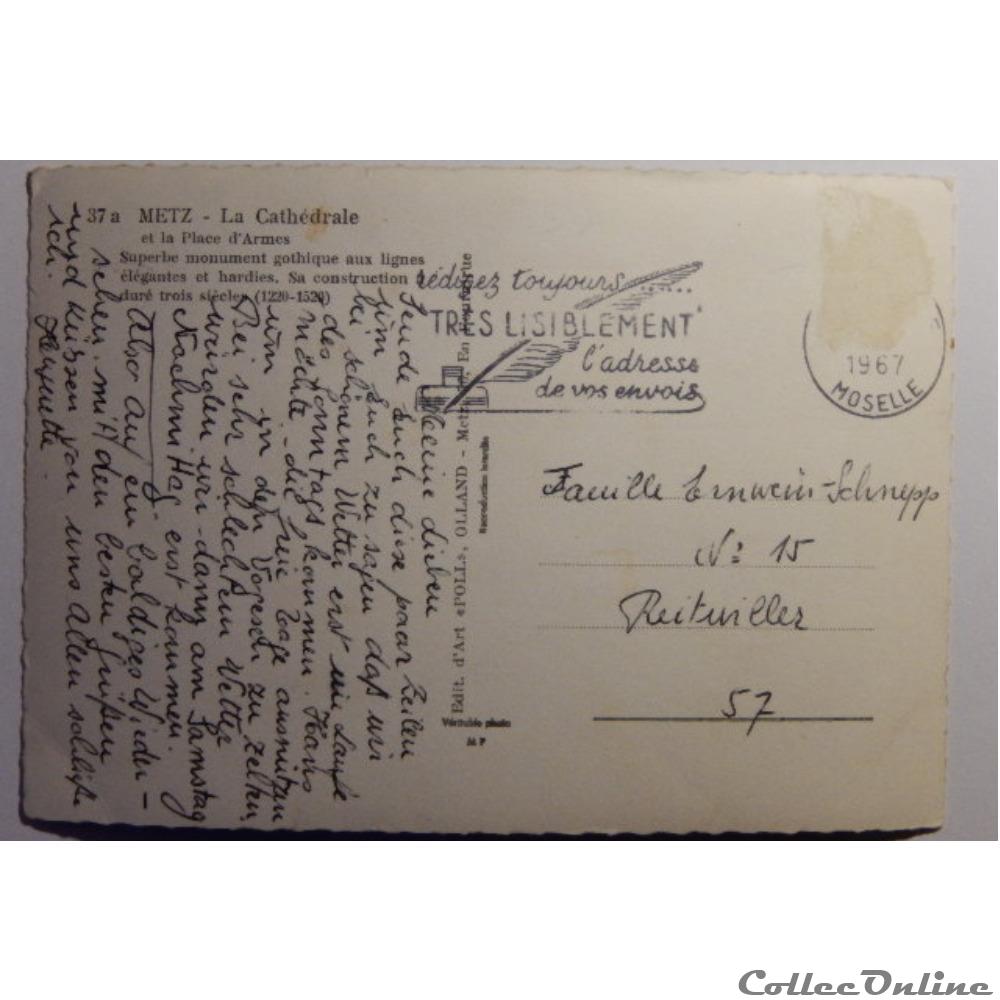 37a METZ - La Cathédrale
et la Place d'Armes
Superbe monument gothique aux lignes
élégantes et hardies. Sa construction a
duré trois siècles (1220-1520)
rédigez toujours......
TRES LISIBLEMENT
l'adresse
de vos envois
1967
MOSELLE
Meine Lieben
Sende Euch diese paar Zeilen
um Euch zu sagen das wir
bei schönem Wetter erst im Laufe
des Sonntags kommen. Hans
möchte die freie Tage ausnützen
um in den Vogesen zu zelten,
Bei sehr schlechtem Wetter
würden wir dann am Samstag
Nachmittag erst kommen.
Also auf ein baldiges Wieder-
sehen. mit den besten Grüßen
und Küssen von uns Allen schließe
ich.
Huguette
Edit. d'Art «POLL», OLLAND - Metz
Reproduction interdite
Véritable photo
M P
Famille Ernwein-Schnepp
N° 15
Reitwiller
57
CollecOnline